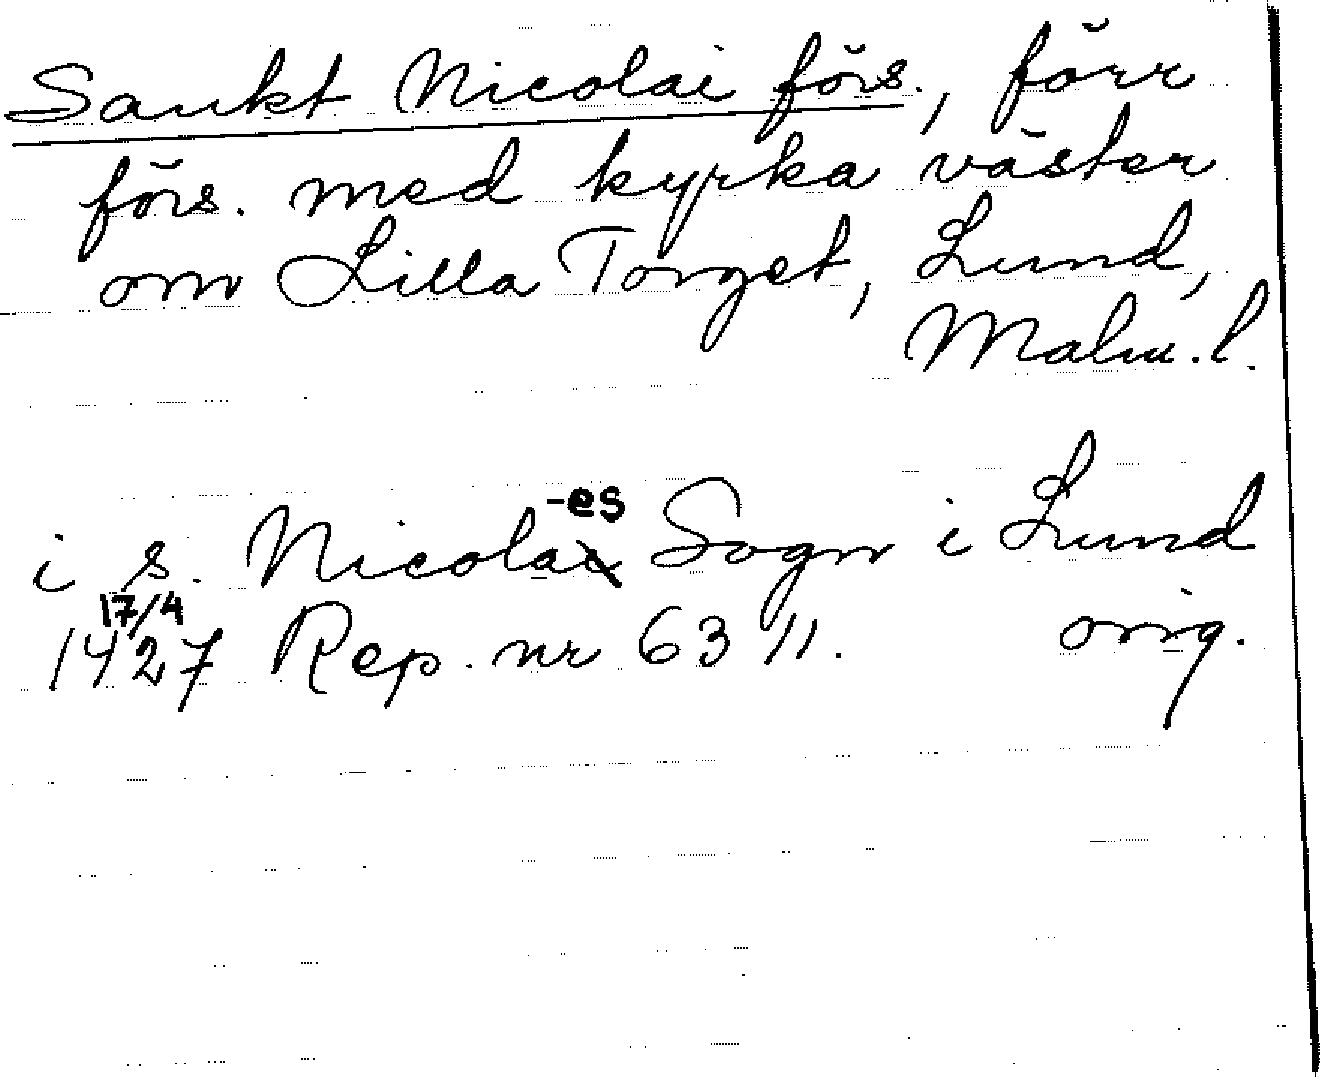 Sankt Nicolai förs., förr
förs. med kyrka väster
om Lilla Torget, Lund,
Malm. l.
-es
i s. Nicolai Sogn i Lund
17/4
1427 Rep. nr 6311. orig.